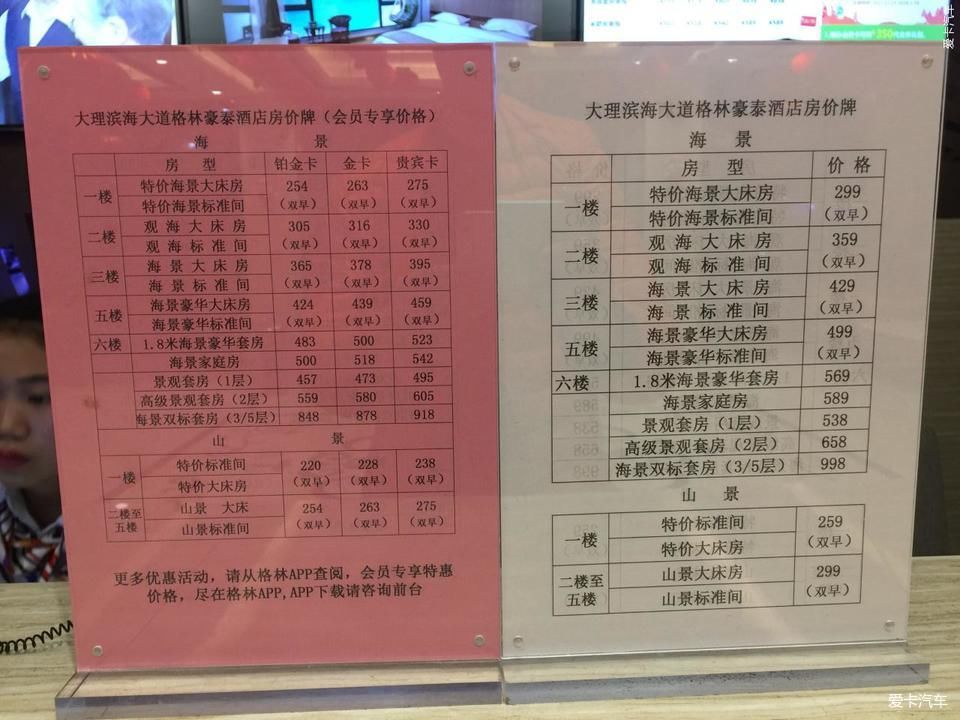 大理滨海大道格林豪泰酒店房价牌（会员专享价格）
海 景
房 型 铂金卡 金卡 贵宾卡
一楼 特价海景大床房 254 263 275
特价海景标准间 （双早） （双早） （双早）
二楼 观海大床房 305 316 330
观海标准间 （双早） （双早） （双早）
三楼 海景大床房 365 378 395
海景标准间 （双早） （双早） （双早）
五楼 海景豪华大床房 424 439 459
海景豪华标准间 （双早） （双早） （双早）
六楼 1.8米海景豪华套房 483 500 523
海景家庭房 500 518 542
景观套房（1层） 457 473 495
高级景观套房（2层） 559 580 605
海景双标套房（3/5层） 848 878 918
山 景
一楼 特价标准间 220 228 238
特价大床房 （双早） （双早） （双早）
二楼至五楼 山景 大床 254 263 275
山景标准间 （双早） （双早） （双早）
更多优惠活动，请从格林APP查阅，会员专享特惠
价格，尽在格林APP,APP下载请咨询前台
大理滨海大道格林豪泰酒店房价牌
海 景
房 型 价 格
一楼 特价海景大床房 299
特价海景标准间 （双早）
二楼 观海大床房 359
观海标准间 （双早）
三楼 海景大床房 429
海景标准间 （双早）
五楼 海景豪华大床房 499
海景豪华标准间 （双早）
六楼 1.8米海景豪华套房 569
海景家庭房 589
景观套房（1层） 538
高级景观套房（2层） 658
海景双标套房（3/5层） 998
山 景
一楼 特价标准间 259
特价大床房 （双早）
二楼至五楼 山景大床房 299
山景标准间 （双早）
爱卡汽车
爱卡汽车